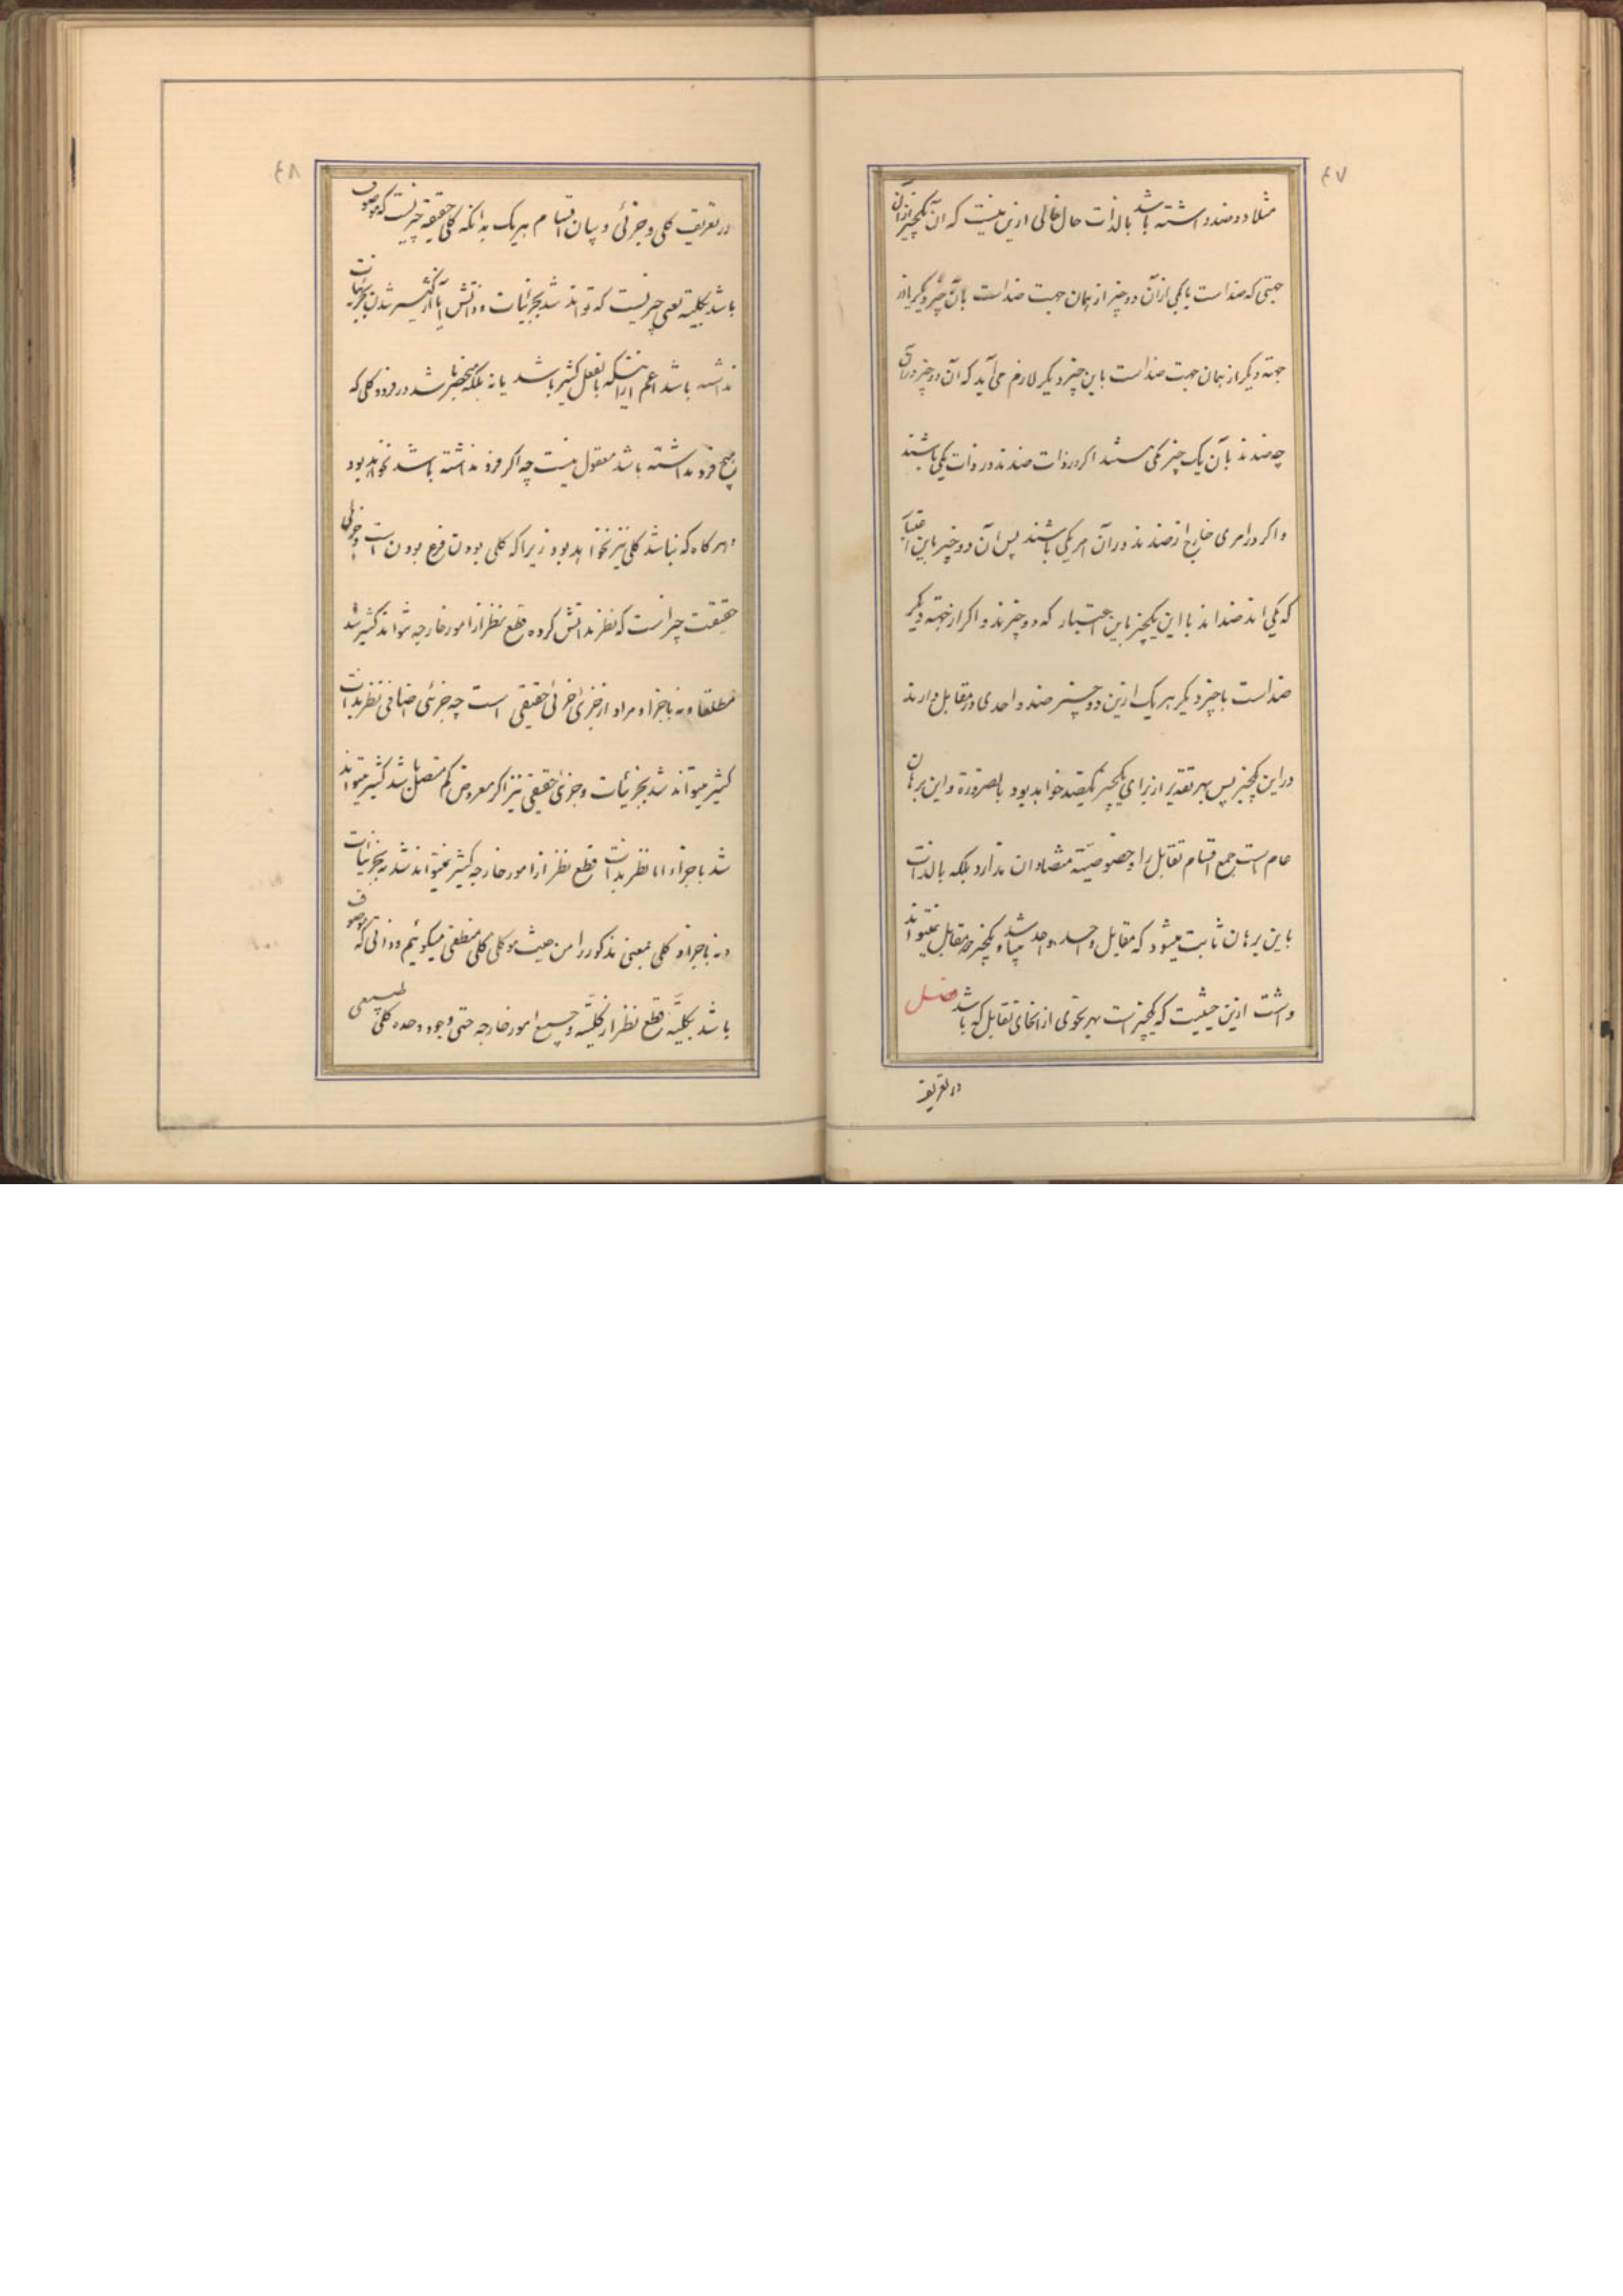 ٤٧
مثلا دو ضد داشته باشد بالذات حال خالی ازین نیست که آن یکچیز از آن
جهتی که ضد است با یکی از آن دو چیز از همان جهت ضد است بآن چیز دیگر یا از
جهة دیگر از همان جهت ضد است باین چیز دیگر لازم می آید که آن دو چیز در آن
چه ضدند بآن یک چیز یکی باشند اگر در ذات ضدند در ذات یکی باشند
و اگر در امری خارج از ضدند در آن امر یکی باشند پس آن دو چیز باین اعتبار
که یکی اند ضد اند با این یکچیز باین اعتبار که دو چیزند و اگر از جهة دیگر
ضد است با چیز دیگر هر یک ازین دو چیز ضد واحدی در مقابل دارند
در این یکچیز پس بهر تقدیر از برای یکچیز یکضد خواهد بود بالضرورة و این برهان
عام است جمیع اقسام تقابل را و خصوصیة بمتضادان ندارد بلکه بالذات
باین برهان ثابت میشود که مقابل واحد واحد میباشد و یکچیز دو مقابل نمیتواند
داشت ازین حیثیت که یکچیز است بهر نحوی از انحای تقابل که باشد فصل
در تعریف
٤٨
در تعریف کلی و جزئی و بیان اقسام هر یک بدانکه کلی حقیقة چیزیست که موصوف
باشد بکلیة یعنی چیزیست که تواند شد بجزئیات و ذاتش ابا از کثیر شدن بجزئیات
نداشته باشد اعم از اینکه بالفعل کثیر باشد یا نه بلکه منحصر باشد در فرد و کلی که
هیچ فرد نداشته باشد معقول نیست چه اگر فرد نداشته باشد نخواهد بود
و هر گاه که نباشد کلی نیز نخواهد بود زیرا که کلی بودن فرع بودن است و جزئی
حقیقت چیزاست که نظر بذاتش کرده قطع نظر از امور خارجه نتواند کثیر شد
مطلقا و نه باجزاء و مراد از جزئی جزئی حقیقی است چه جزئی اضافی نظر بذات
کثیر میتواند شد بجزئیات و جزئی حقیقی نیز اگر معروض کم متصل باشد کثیر میتواند
شد باجزاء اما نظر بذات قطع نظر از امور خارجه کثیر نمیتواند شد نه بجزئیات
و نه باجزاء و کلی بمعنی مذکور را من حیث هو کلی کلی منطقی میگوئیم و ذاتی که موصوف
باشد بکلیة قطع نظر از کلیة و جمیع امور خارجه حتی وجود وحده کلی طبیعی